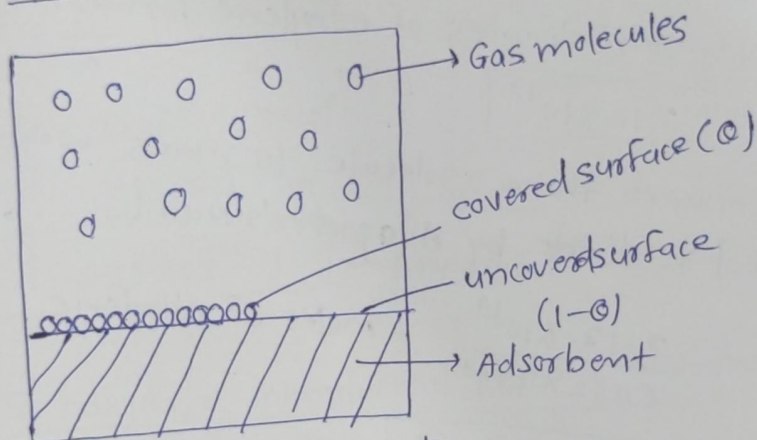 Gas molecules
covered surface (θ)
uncoverdsurface
(1-θ)
Adsorbent